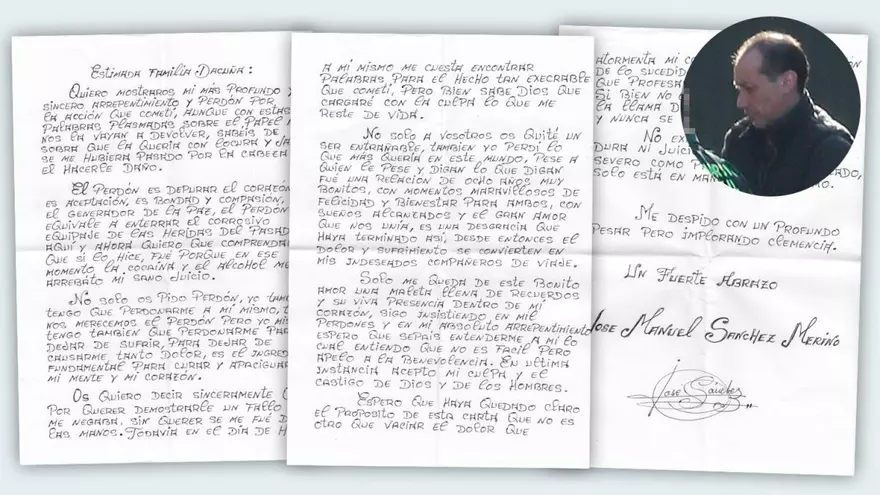 Estimada Familia Dacuña:
Quiero mostraros mi más profundo y
sincero arrepentimiento y perdón por
la acción que cometí, aunque con estas
palabras plasmadas sobre el papel n
nos la vayan a devolver, sabéis de
sobra que la quería con locura y ja
se me hubiera pasado por la cabeza
el hacerle daño.
El perdón es depurar el corazón
es aceptación, es bondad y compasión,
el generador de la paz, el perdón
equivale a enterrar el corrosivo
equipaje de las heridas del pasad
aquí y ahora quiero que comprenda
que si lo hice, fue porque en ese
momento la cocaína y el alcohol me
arrebató mi sano juicio.
No solo os pido perdón, yo tam
tengo que perdonarme a mí mismo, t
nos merecemos el perdón pero yo mis
tengo también que perdonarme par
dejar de sufrir, para dejar de
causarme tanto dolor, es el ingred
fundamental para curar y apacigua
mi mente y mi corazón.
Os quiero decir sinceramente
por querer demostrarle un fallo
me negaba, sin querer se me fue d
las manos. Todavía en el día de h
a mí mismo me cuesta encontrar
palabras para el hecho tan execrable
que cometí, pero bien sabe Dios que
cargaré con la culpa lo que me
reste de vida.
No solo a vosotros os quité un
ser entrañable, también yo perdí lo
que más quería en este mundo, pese a
quien le pese y digan lo que digan
fue una relación de ocho años muy
bonitos, con momentos maravillosos de
felicidad y bienestar para ambos, con
sueños alcanzados y el gran amor
que nos unía, es una desgracia que
haya terminado así, desde entonces el
dolor y sufrimiento se convierten en
mis indeseados compañeros de viaje.
Solo me queda de este bonito
amor una maleta llena de recuerdos
y su viva presencia dentro de mi
corazón, sigo insistiendo en mil
perdones y en mi absoluto arrepentimiento
espero que sepáis entenderme a mí lo
cual entiendo que no es fácil pero
apelo a la benevolencia. En última
instancia acepto mi culpa y el
castigo de Dios y de los hombres.
Espero que haya quedado claro
el propósito de esta carta que no es
otro que vaciar el dolor que
atormenta mi co
de lo sucedid
que profesa
Si bien no
la llama d
y nunca se
No ex
dura ni juici
severo como p
solo está en man
Me despido con un profundo
pesar pero implorando clemencia.
Un Fuerte Abrazo
Jose Manuel Sanchez Merino
José Sánchez